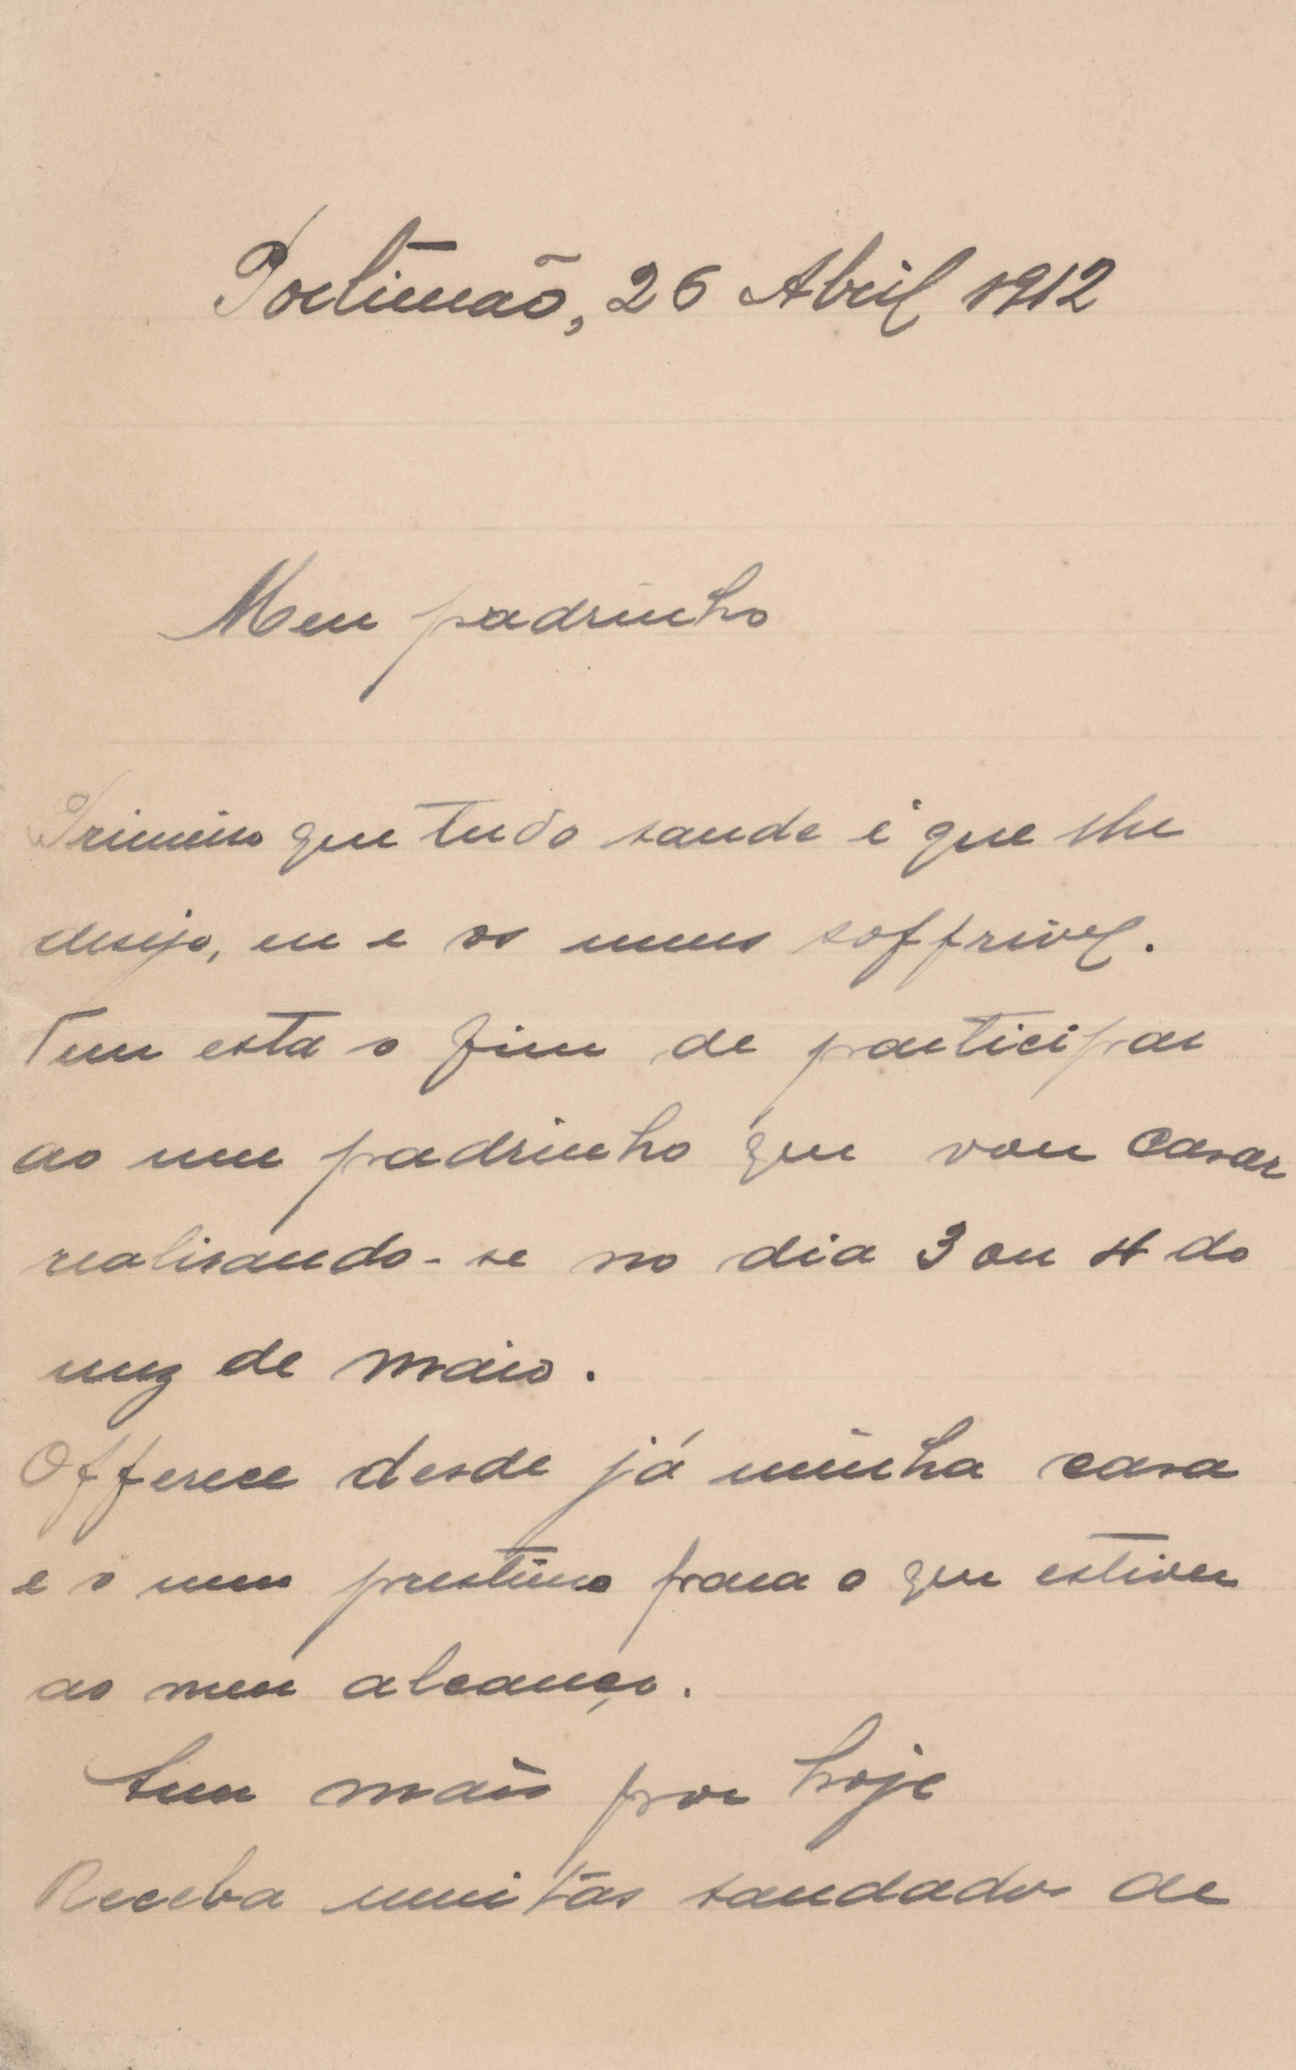 Portimão, 26 Abril 1912
Meu padrinho
Primeiro que tudo saude é que lhe
desejo, eu e os meus soffrivel.
Tem esta o fim de participar
ao meu padrinho que vou casar
realisando-se no dia 3 ou 4 do
mez de maio.
Offerece desde já minha casa
e o meu prestimo para o que estiver
ao meu alcanço.
Sem mais por hoje
Receba muitas saudades de